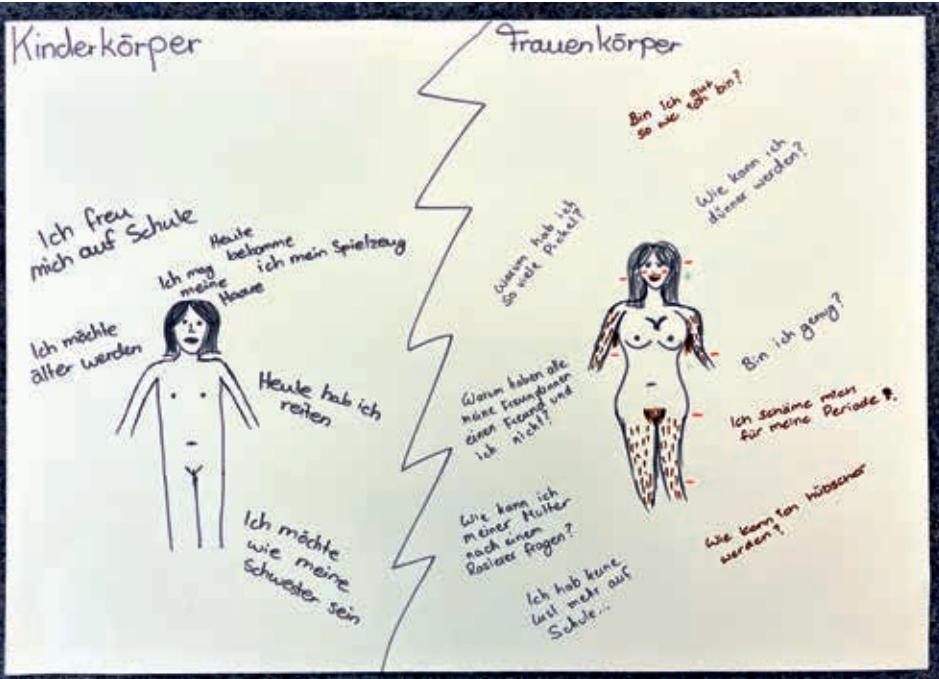 Kinderkörper
Ich freu
mich auf Schule
Ich mag
meine
Haare
Heute
bekomme
ich mein Spielzeug
Ich möchte
älter werden
Heute hab ich
reiten
Ich möchte
wie meine
Schwester sein
Frauenkörper
Bin ich gut
so wie ich bin?
Wie kann ich
dünner werden?
Warum hab ich
so viele Pickel?
Bin ich genug?
Warum haben alle
meine Freundinnen
einen Freund und
ich nicht!?
Ich schäme mich
für meine Periode?
Wie kann ich
meiner Mutter
nach einem
Rasierer fragen?
Wie kann ich hübscher
werden?
Ich hab keine
Lust mehr auf
Schule...